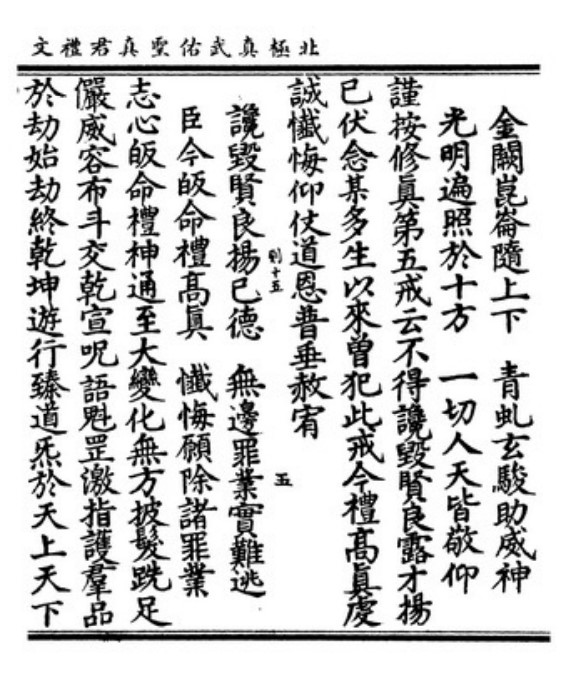 北極真武佑聖真君禮文
金闕崑崙隨上下　青虬玄駿助威神
光明遍照於十方　一切人天皆敬仰
謹按修眞第五戒云不得讒毀賢良露才揚
已伏念某多生以來曾犯此戒今禮髙眞虔
誠懺悔仰仗道恩普垂赦宥
則十五
五
讒毀賢良揚已德　無邊罪業實難逃
臣今皈命禮髙眞　懺悔願除諸罪業
志心皈命禮神通至大變化無方披髮跣足
儼威容布斗交乾宣呪語魁罡激指護羣品
於劫始劫終乾坤遊行臻道炁於天上天下